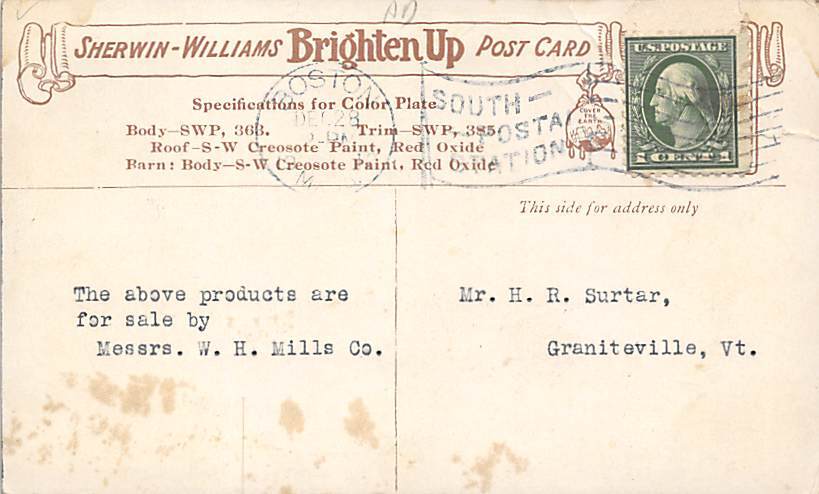 SHERWIN-WILLIAMS Brighten Up POST CARD
Specifications for Color Plate
Body—SWP, 363. Trim—SWP, 385
Roof—S-W Creosote Paint, Red Oxide
Barn: Body—S-W Creosote Paint, Red Oxide
BOSTON
DEC 28
SOUTH
POSTAL
STATION
COVER
THE
EARTH
U.S. POSTAGE
1 CENT 1
This side for address only
The above products are
for sale by
Messrs. W. H. Mills Co.
Mr. H. R. Surtar,
Graniteville, Vt.